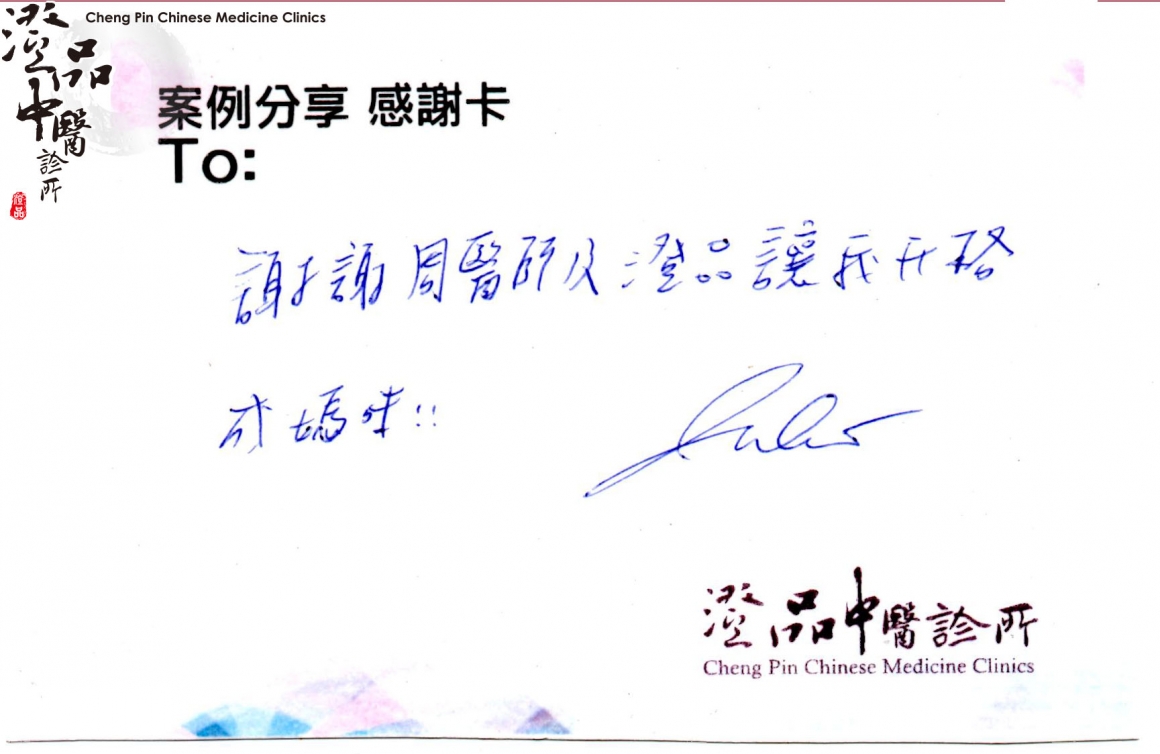 Cheng Pin Chinese Medicine Clinics
澄品中醫診所
澄品
案例分享 感謝卡
To:
謝謝周醫師及澄品讓我升格
成媽咪!!
澄品中醫診所
Cheng Pin Chinese Medicine Clinics